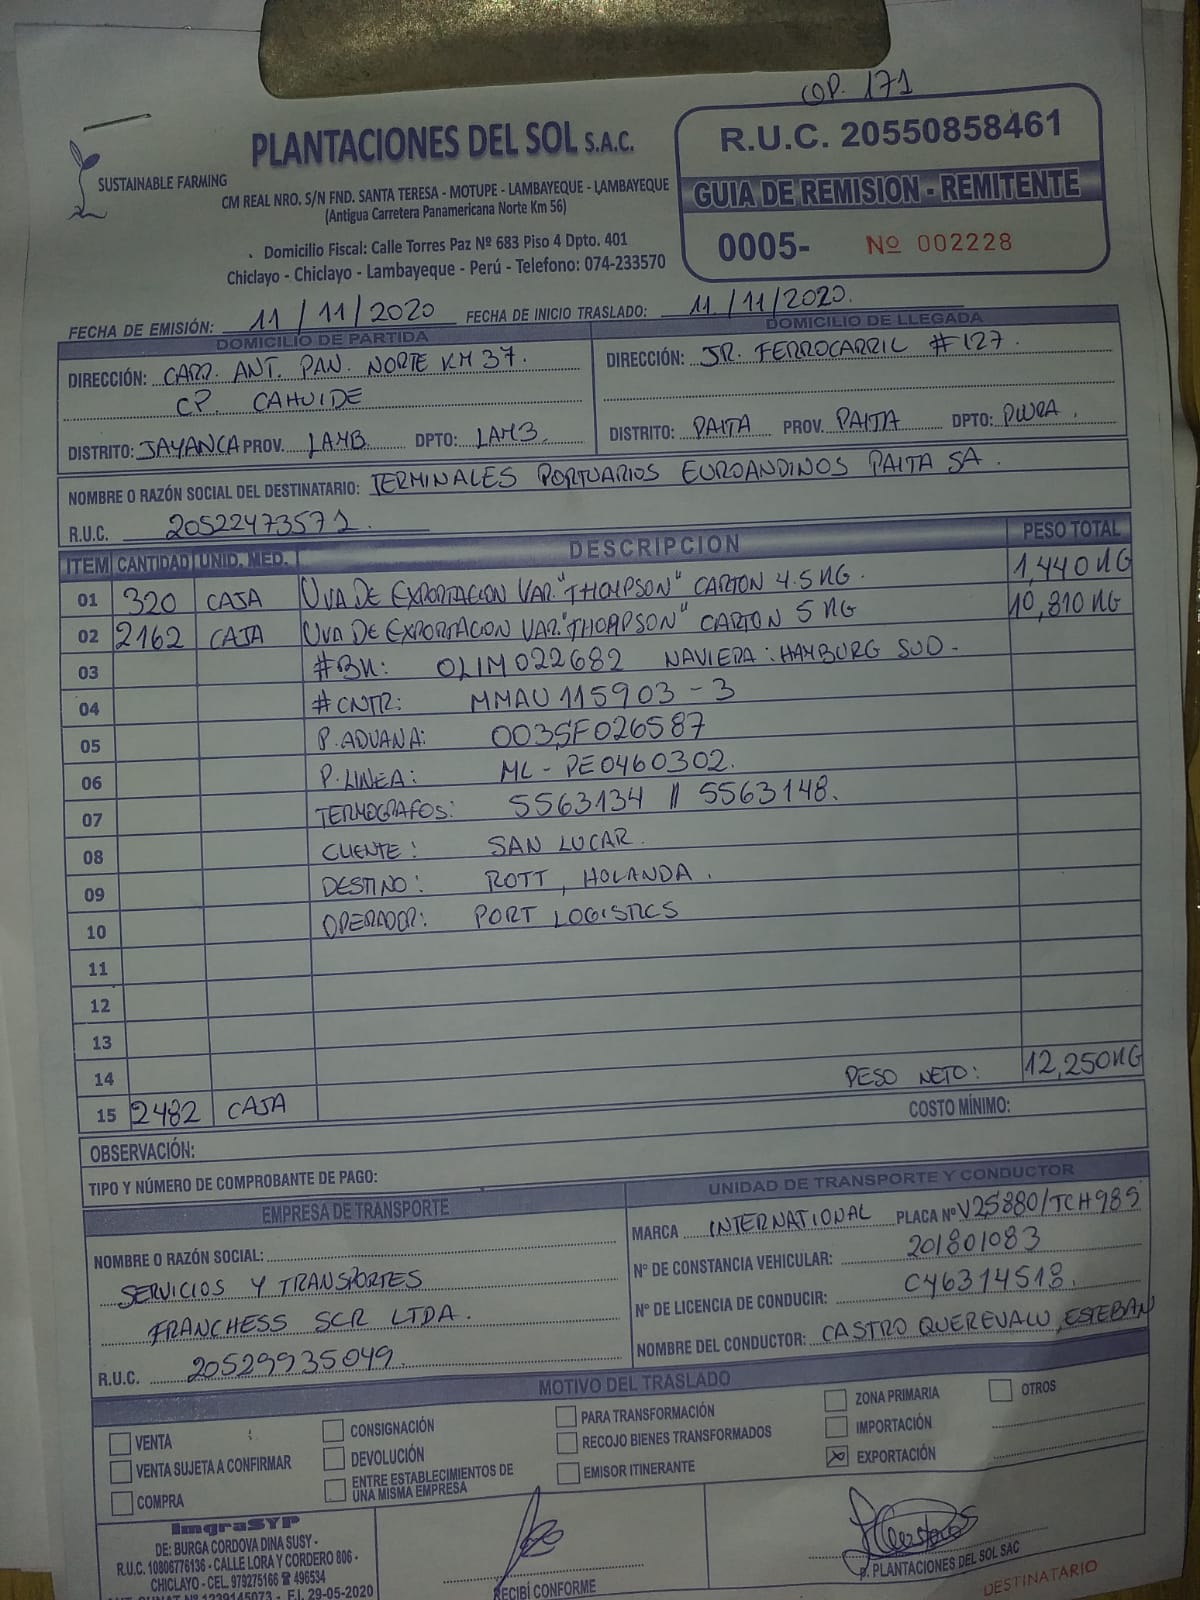 COP. 171
PLANTACIONES DEL SOL S.A.C.
SUSTAINABLE FARMING
CM REAL NRO. S/N FND. SANTA TERESA - MOTUPE - LAMBAYEQUE - LAMBAYEQUE
(Antigua Carretera Panamericana Norte Km 56)
Domicilio Fiscal: Calle Torres Paz Nº 683 Piso 4 Dpto. 401
Chiclayo - Chiclayo - Lambayeque - Perú - Telefono: 074-233570
R.U.C. 20550858461
GUIA DE REMISION - REMITENTE
0005- Nº 002228
FECHA DE EMISIÓN: 11/11/2020 FECHA DE INICIO TRASLADO: 11/11/2020.
DOMICILIO DE PARTIDA
DIRECCIÓN: CARR. ANT. PAN. NORTE KM 37.
CP. CAHUIDE
DISTRITO: JAYANCA PROV. LAMB. DPTO: LAMB.
DOMICILIO DE LLEGADA
DIRECCIÓN: JR. FERROCARRIL #127.
DISTRITO: PAITA PROV. PAITA DPTO: PIURA.
NOMBRE O RAZÓN SOCIAL DEL DESTINATARIO: TERMINALES PORTUARIOS EUROANDINOS PAITA SA.
R.U.C. 20522473571.
ITEM CANTIDAD UNID. MED. DESCRIPCION PESO TOTAL
01 320 CAJA UVA DE EXPORTACION VAR. "THOMPSON" CARTON 4.5 KG. 1,440 KG
02 2162 CAJA UVA DE EXPORTACION VAR. "THOMPSON" CARTON 5 KG 10,810 KG
03 #BK: OLIM022682 NAVIERA: HAMBURG SUD.
04 #CNTR: MMAU 115903-3
05 P. ADUANA: 003SF026587
06 P. LINEA: ML-PE0460302.
07 TERMOGRAFOS: 5563134 // 5563148.
08 CLIENTE: SAN LUCAR.
09 DESTINO: ROTT, HOLANDA.
10 OPERADOR: PORT LOGISTICS
11
12
13
14 PESO NETO: 12,250 KG
15 2482 CAJA
COSTO MÍNIMO:
OBSERVACIÓN:
TIPO Y NÚMERO DE COMPROBANTE DE PAGO:
EMPRESA DE TRANSPORTE
NOMBRE O RAZÓN SOCIAL:
SERVICIOS Y TRANSPORTES
FRANCHESS SCR LTDA.
R.U.C. 20529935049.
UNIDAD DE TRANSPORTE Y CONDUCTOR
MARCA INTERNATIONAL PLACA Nº V2S880/TCH985
Nº DE CONSTANCIA VEHICULAR: 201801083
Nº DE LICENCIA DE CONDUCIR: C46314518.
NOMBRE DEL CONDUCTOR: CASTRO QUEREVALU, ESTEBAN
MOTIVO DEL TRASLADO
VENTA
VENTA SUJETA A CONFIRMAR
COMPRA
CONSIGNACIÓN
DEVOLUCIÓN
ENTRE ESTABLECIMIENTOS DE
UNA MISMA EMPRESA
PARA TRANSFORMACIÓN
RECOJO BIENES TRANSFORMADOS
EMISOR ITINERANTE
ZONA PRIMARIA
IMPORTACIÓN
X EXPORTACIÓN
OTROS
ImgraSYP
DE: BURGA CORDOVA DINA SUSY -
R.U.C. 10806776136 - CALLE LORA Y CORDERO 806 -
CHICLAYO - CEL. 979275166 ☎ 496534
AUT. SUNAT Nº 1239145073 - F.I. 29-05-2020
RECIBÍ CONFORME
p. PLANTACIONES DEL SOL SAC
DESTINATARIO